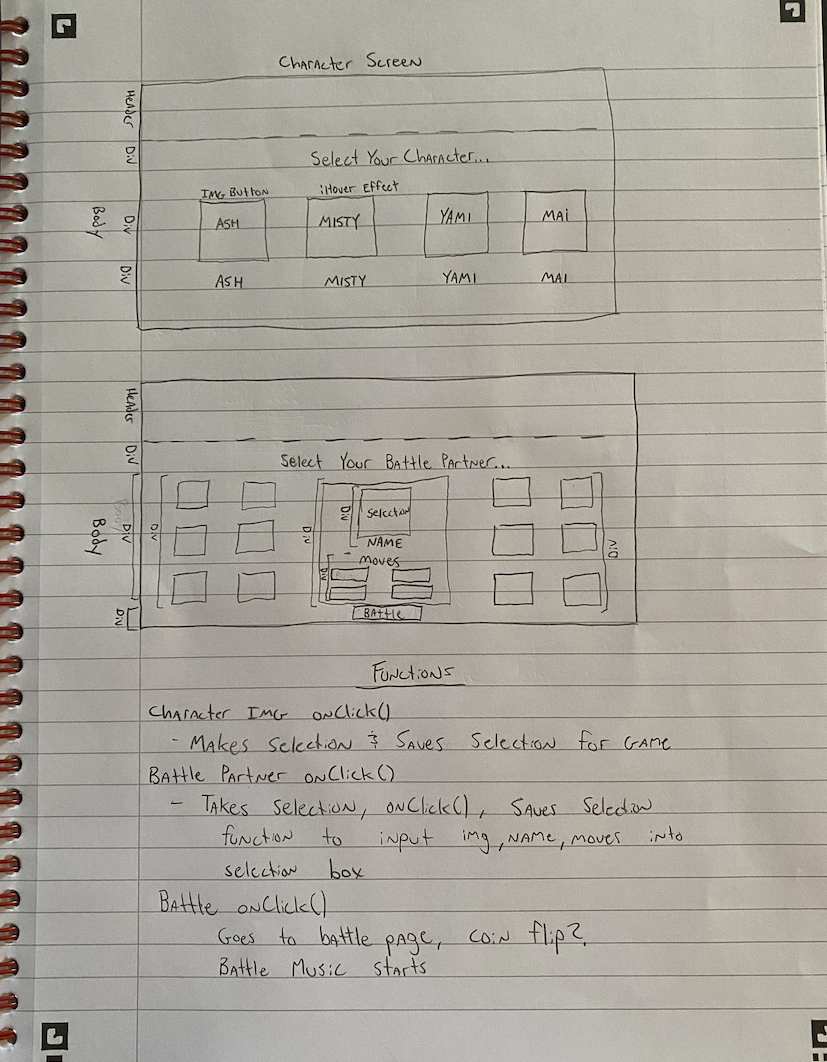 Character Screen
Header
Div
Select Your Character...
IMG Button
:Hover Effect
Body
Div
ASH
MISTY
YAMI
MAI
Div
ASH
MISTY
YAMI
MAI
Header
Div
Select Your Battle Partner...
Body
Div
Div
Div
Div
Selection
NAME
Moves
Div
Div
Div
BATTLE
Functions
Character IMG onClick()
- Makes Selection & Saves Selection for GAME
Battle Partner onClick()
- Takes Selection, onClick(), Saves Selection
function to input img, NAME, moves into
selection box
Battle onClick()
Goes to battle page, coin flip?,
Battle Music Starts